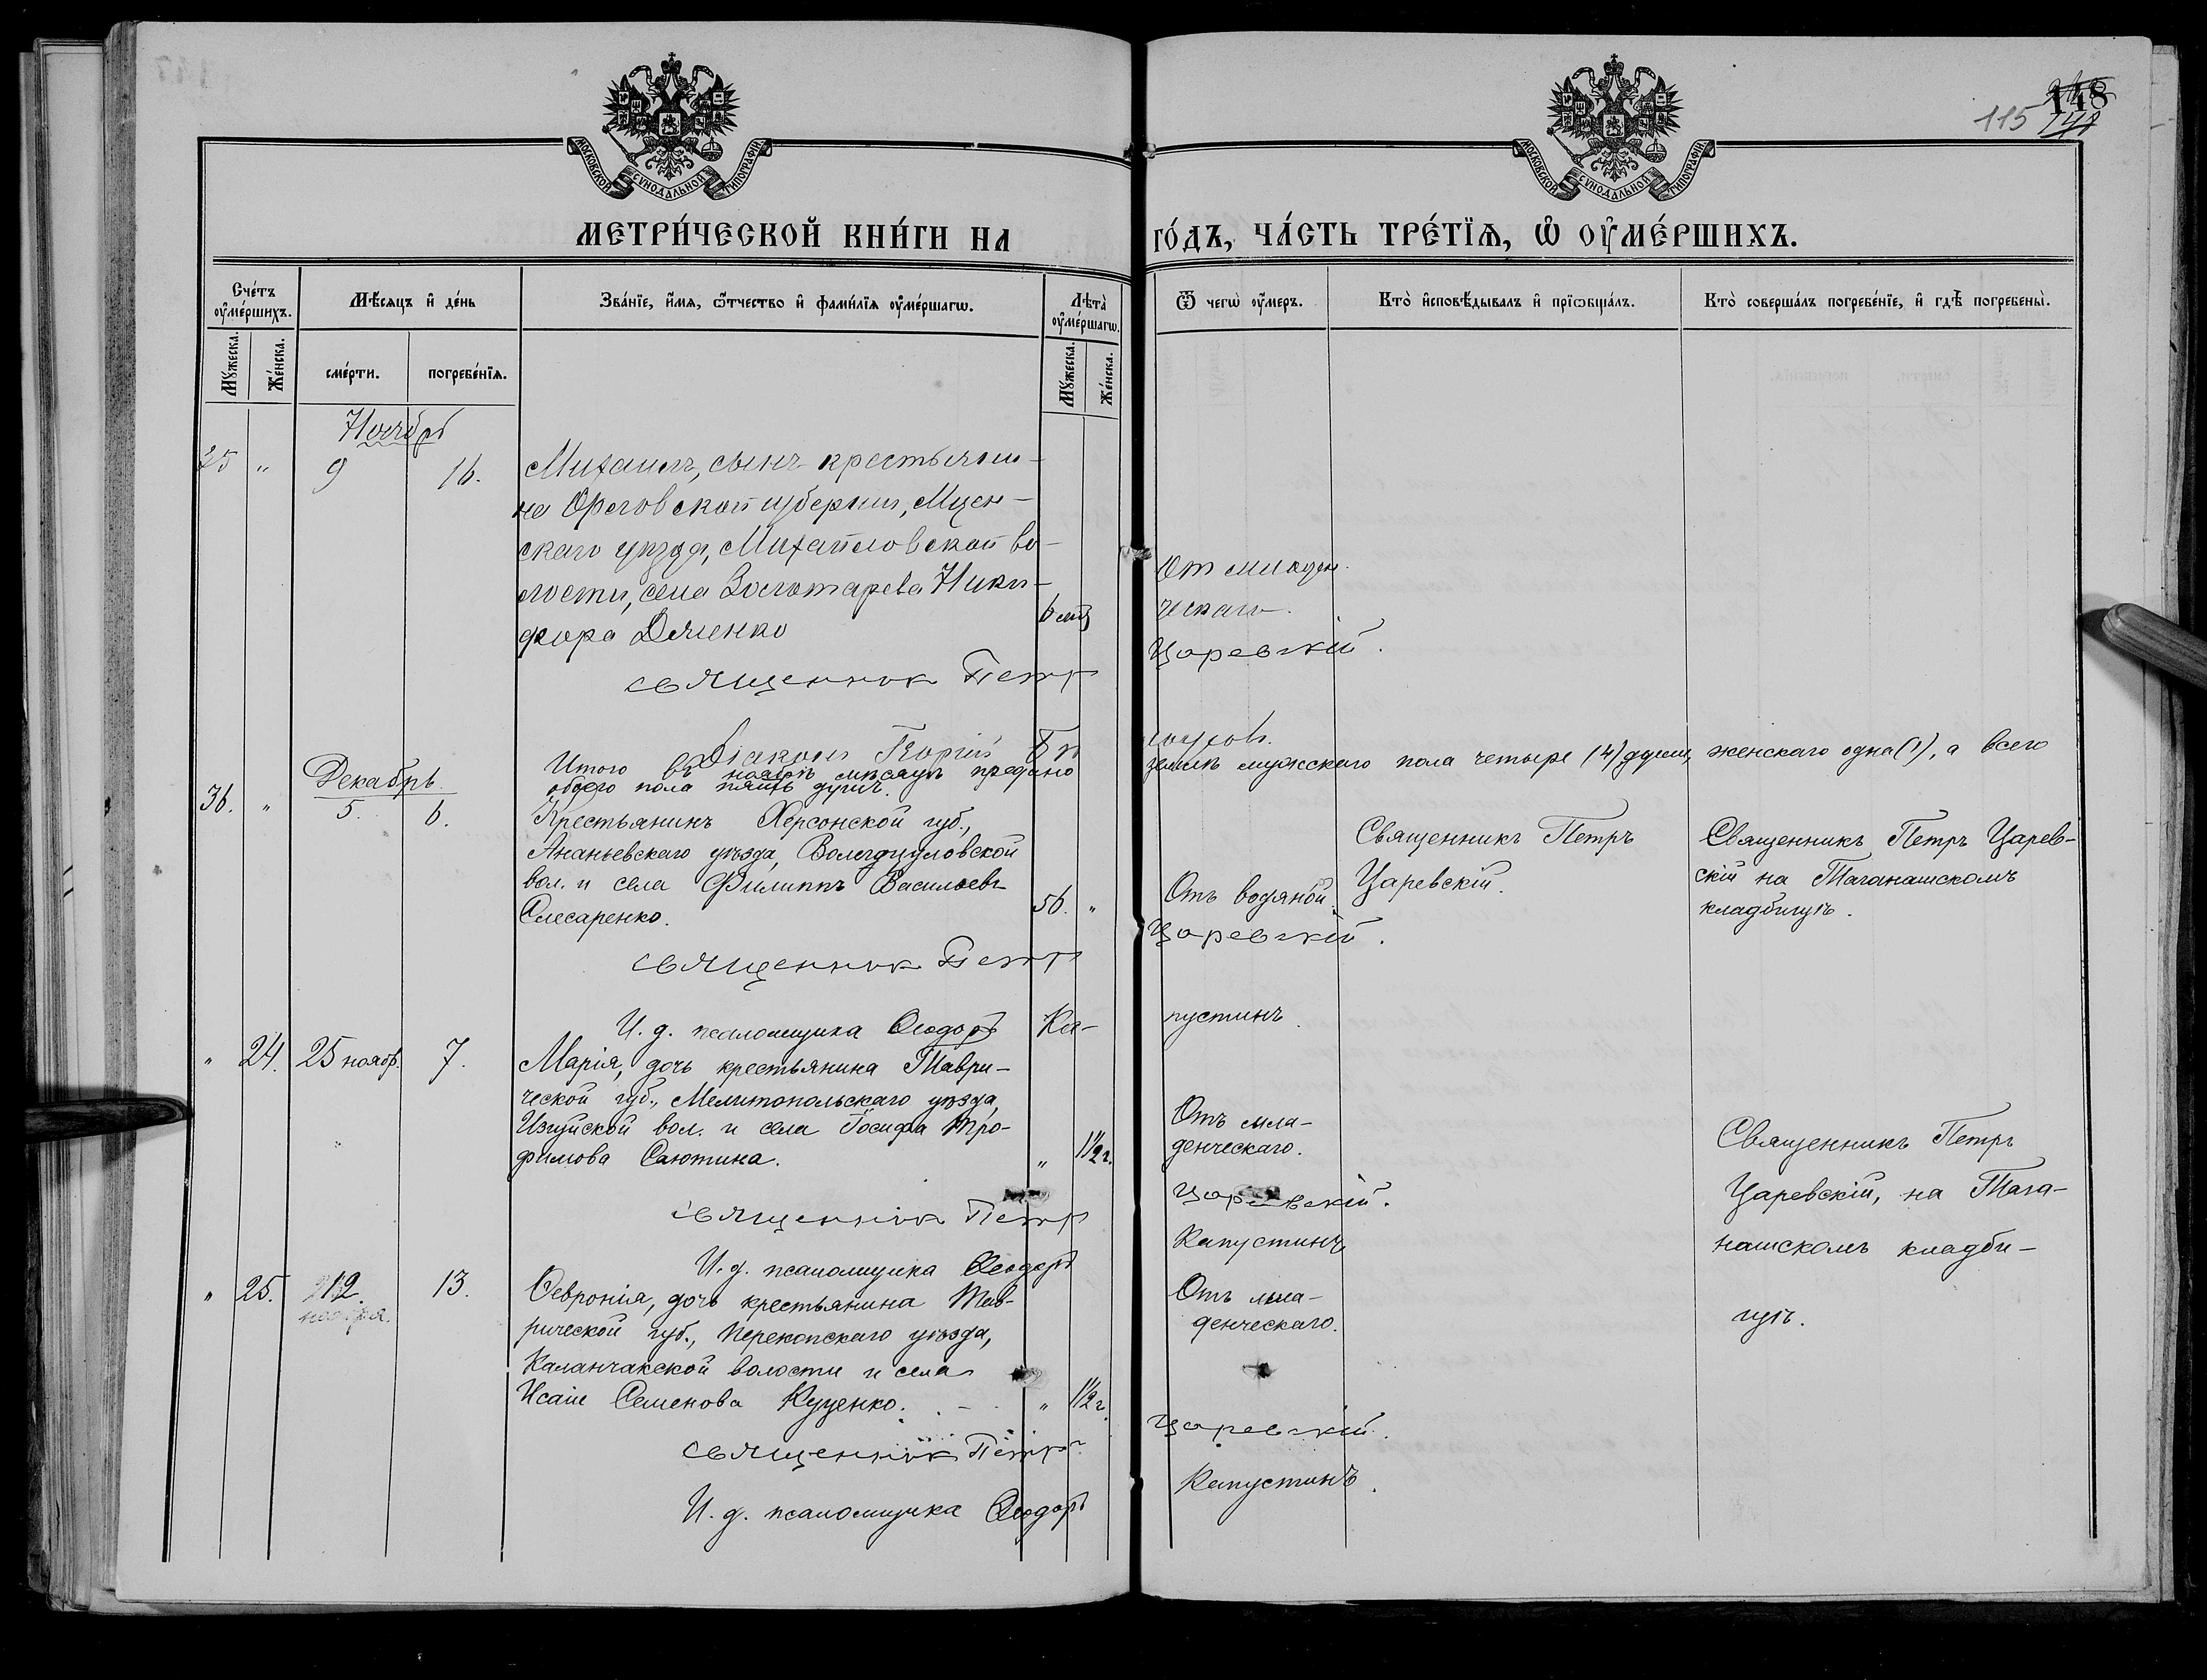 148
115
МОСКОВСКОЙ СѴНОДАЛЬНОЙ ТИПОГРАФІИ
МОСКОВСКОЙ СѴНОДАЛЬНОЙ ТИПОГРАФІИ
МЕТРИ́ЧЕСКОЙ КНИ́ГИ НА ГО́ДЪ, ЧА́СТЬ ТРЕ́ТЇѦ, Ѡ҆ ОУ҆МЕ́РШИХЪ.
Сче́тъ оу҆ме́ршихъ.
Мѣ́сяцъ и҆ де́нь
Зва́нїе, и҆́мѧ, ѻ҆́тчество и҆ фами́лїѧ оу҆ме́ршагѡ.
Лѣта̀ оу҆ме́ршагѡ.
Ѿ чегѡ̀ оу҆́меръ.
Кто̀ и҆сповѣ́дывалъ и҆ прїѡбща́лъ.
Кто̀ соверша́лъ погребе́нїе, и҆ гдѣ̀ погребены̀.
Мꙋ́жеска. Же́нска.
сме́рти. погребе́нїѧ.
Мꙋ́жеска. Же́нска.
Ноябрь
35 " 9 16. Михаилъ, сынъ крестьяни-
на Орловской губерніи, Мцен-
скаго уѣзда, Михайловской во-
лости, села Золотарева Ники-
фора Дяченко 6 мѣс
От младен-
ческаго.
Священник Петр Царевскій.
Діаконъ Георгій
Итого въ ноябрѣ мѣсяцѣ предано землѣ мужскаго пола четыре (4) души, женскаго одна (1), а всего
обоего пола пять душъ.
Декабрь.
36. " 5. 6. Крестьянинъ Херсонской губ.,
Ананьевскаго уѣзда,
вол. и села Филиппъ Васильевъ
Слесаренко. 56. "
Отъ водяной.
Священникъ Петръ
Царевскій.
Священникъ Петръ Царев-
скій на Таганашскомъ
кладбищѣ.
Священник Петр Царевскій.
И. д. псаломщика Ѳеодоръ Ка-пустинъ.
" 24. 25 ноябр. 7. Марія, дочь крестьянина Таври-
ческой губ., Мелитопольскаго уѣзда,
вол. и села Іосифа Тро-
фимова Саютина. " 1½ г.
Отъ мла-
денческаго.
Священникъ Петръ
Царевскій, на Тага-
нашскомъ кладби-
щѣ.
Священник Петр Царевскій.
И. д. псаломщика Ѳеодоръ Капустинъ
" 25. 12. ноября. 13. Ѳевронія, дочь крестьянина Тав-
рической губ., Перекопскаго уѣзда,
Каланчакской волости и села
Исаіи Семенова Куценко. " 1½ г.
Отъ мла-
денческаго.
Священник Петр Царевскій.
И. д. псаломщика Ѳеодоръ Капустинъ.